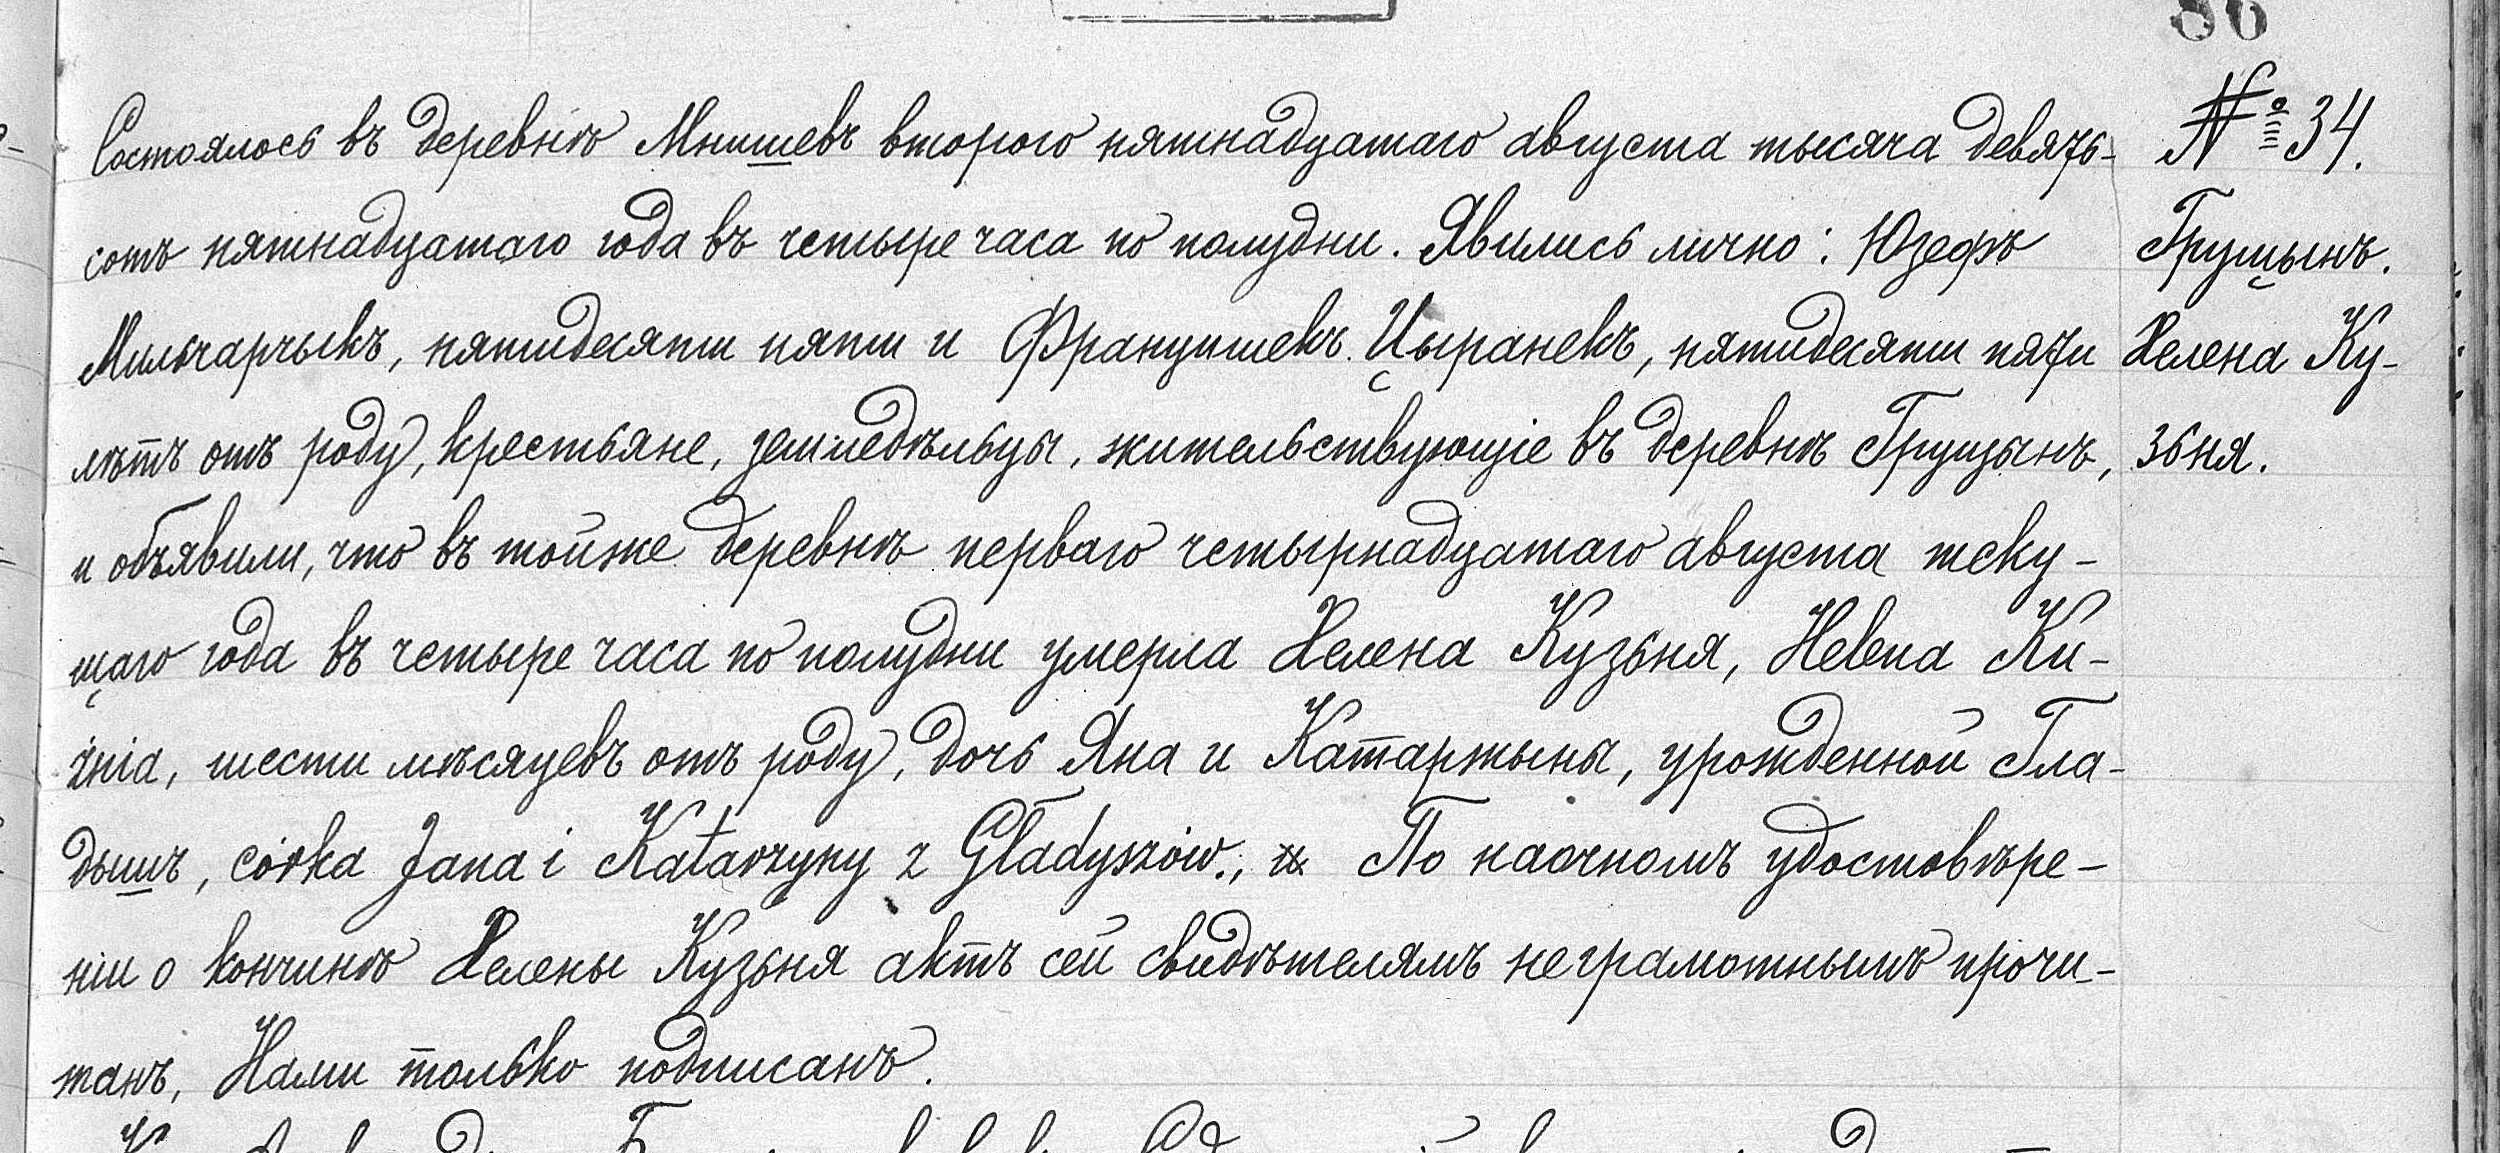 86
Состоялось въ деревнѣ Мнишевъ второго пятнадцатаго августа тысяча девять-
сотъ пятнадцатаго года въ четыре часа по полудни. Явились лично: Юзефъ
Мильчарчыкъ, пятидесяти пяти и Францишекъ Цыранекъ, пятидесяти пяти
лѣтъ отъ роду, крестьяне, земледѣльцы, жительствующіе въ деревнѣ Грущынъ,
и объявили, что въ тойже деревнѣ перваго четырнадцатаго августа теку-
щаго года въ четыре часа по полудни умерла Хелена Кузьня, Helena Ku-
źnia, шести мѣсяцевъ отъ роду, дочь Яна и Катаржыны, урожденной Гла-
дышъ, córka Jana i Katarzyny z Gładyszów., По наочномъ удостовѣре-
ніи о кончинѣ Хелены Кузьня актъ сей свидѣтелямъ неграмотнымъ прочи-
танъ, Нами только подписанъ.
№ 34.
Грущынъ.
Хелена Ку-
зьня.